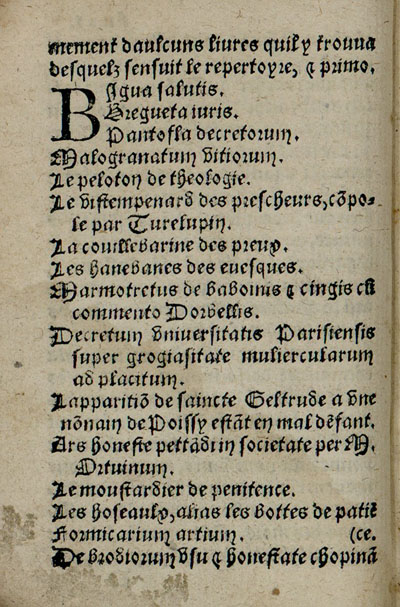 mement daulcuns liures quil y trouua
desquelz sensuit le repertoyre, ⁊ primo.
BIgua salutis.
Bregueta iuris.
Pantofla decretorum.
Malogranatum vitiorum.
Le peloton de theologie.
Le vistempenard des prescheurs, cõpo-
le par Turelupin.
La couillebarine des preux.
Les hanebanes des euesques.
Marmotretus de babouinis ⁊ cingis cũ
commento Dorbellis.
Decretum vniuersitatis Parisiensis
super grogiasitate muliercularum
ad placitum.
Lapparitiõ de saincte Geltrude a vne
nõnain de Poissy estãt en mal dẽfant.
Ars honeste pettãdi in societate per M.
Ortuinum.
Le moustardier de penitence.
Les hoseaulx, alias les bottes de patiẽ
Formicarium artium. (ce.
De brodiorum vsu ⁊ honestate chopinã